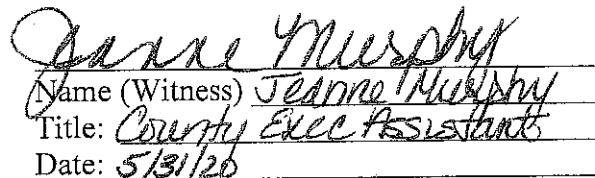 Jeanne Murphy
Name (Witness) Jeanne Murphy
Title: County Exec Assistant
Date: 5/31/20